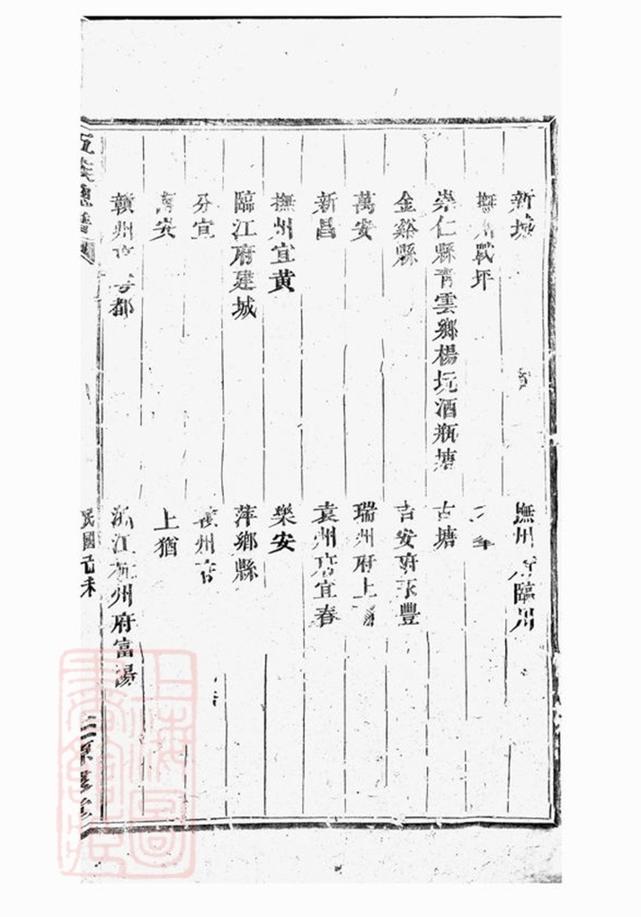 新城
撫州府臨川
撫州戰坪
崇仁縣青雲鄉楊坑酒瓶塘
古塘
金谿縣
吉安府永豐
萬安
瑞州府上
新昌
袁州府宜春
撫州宜黃
樂安
臨江府建城
萍鄉縣
分宜
州府
安
上猶
贛州府雩都
浙江杭州府富陽
族總譜
民國己未